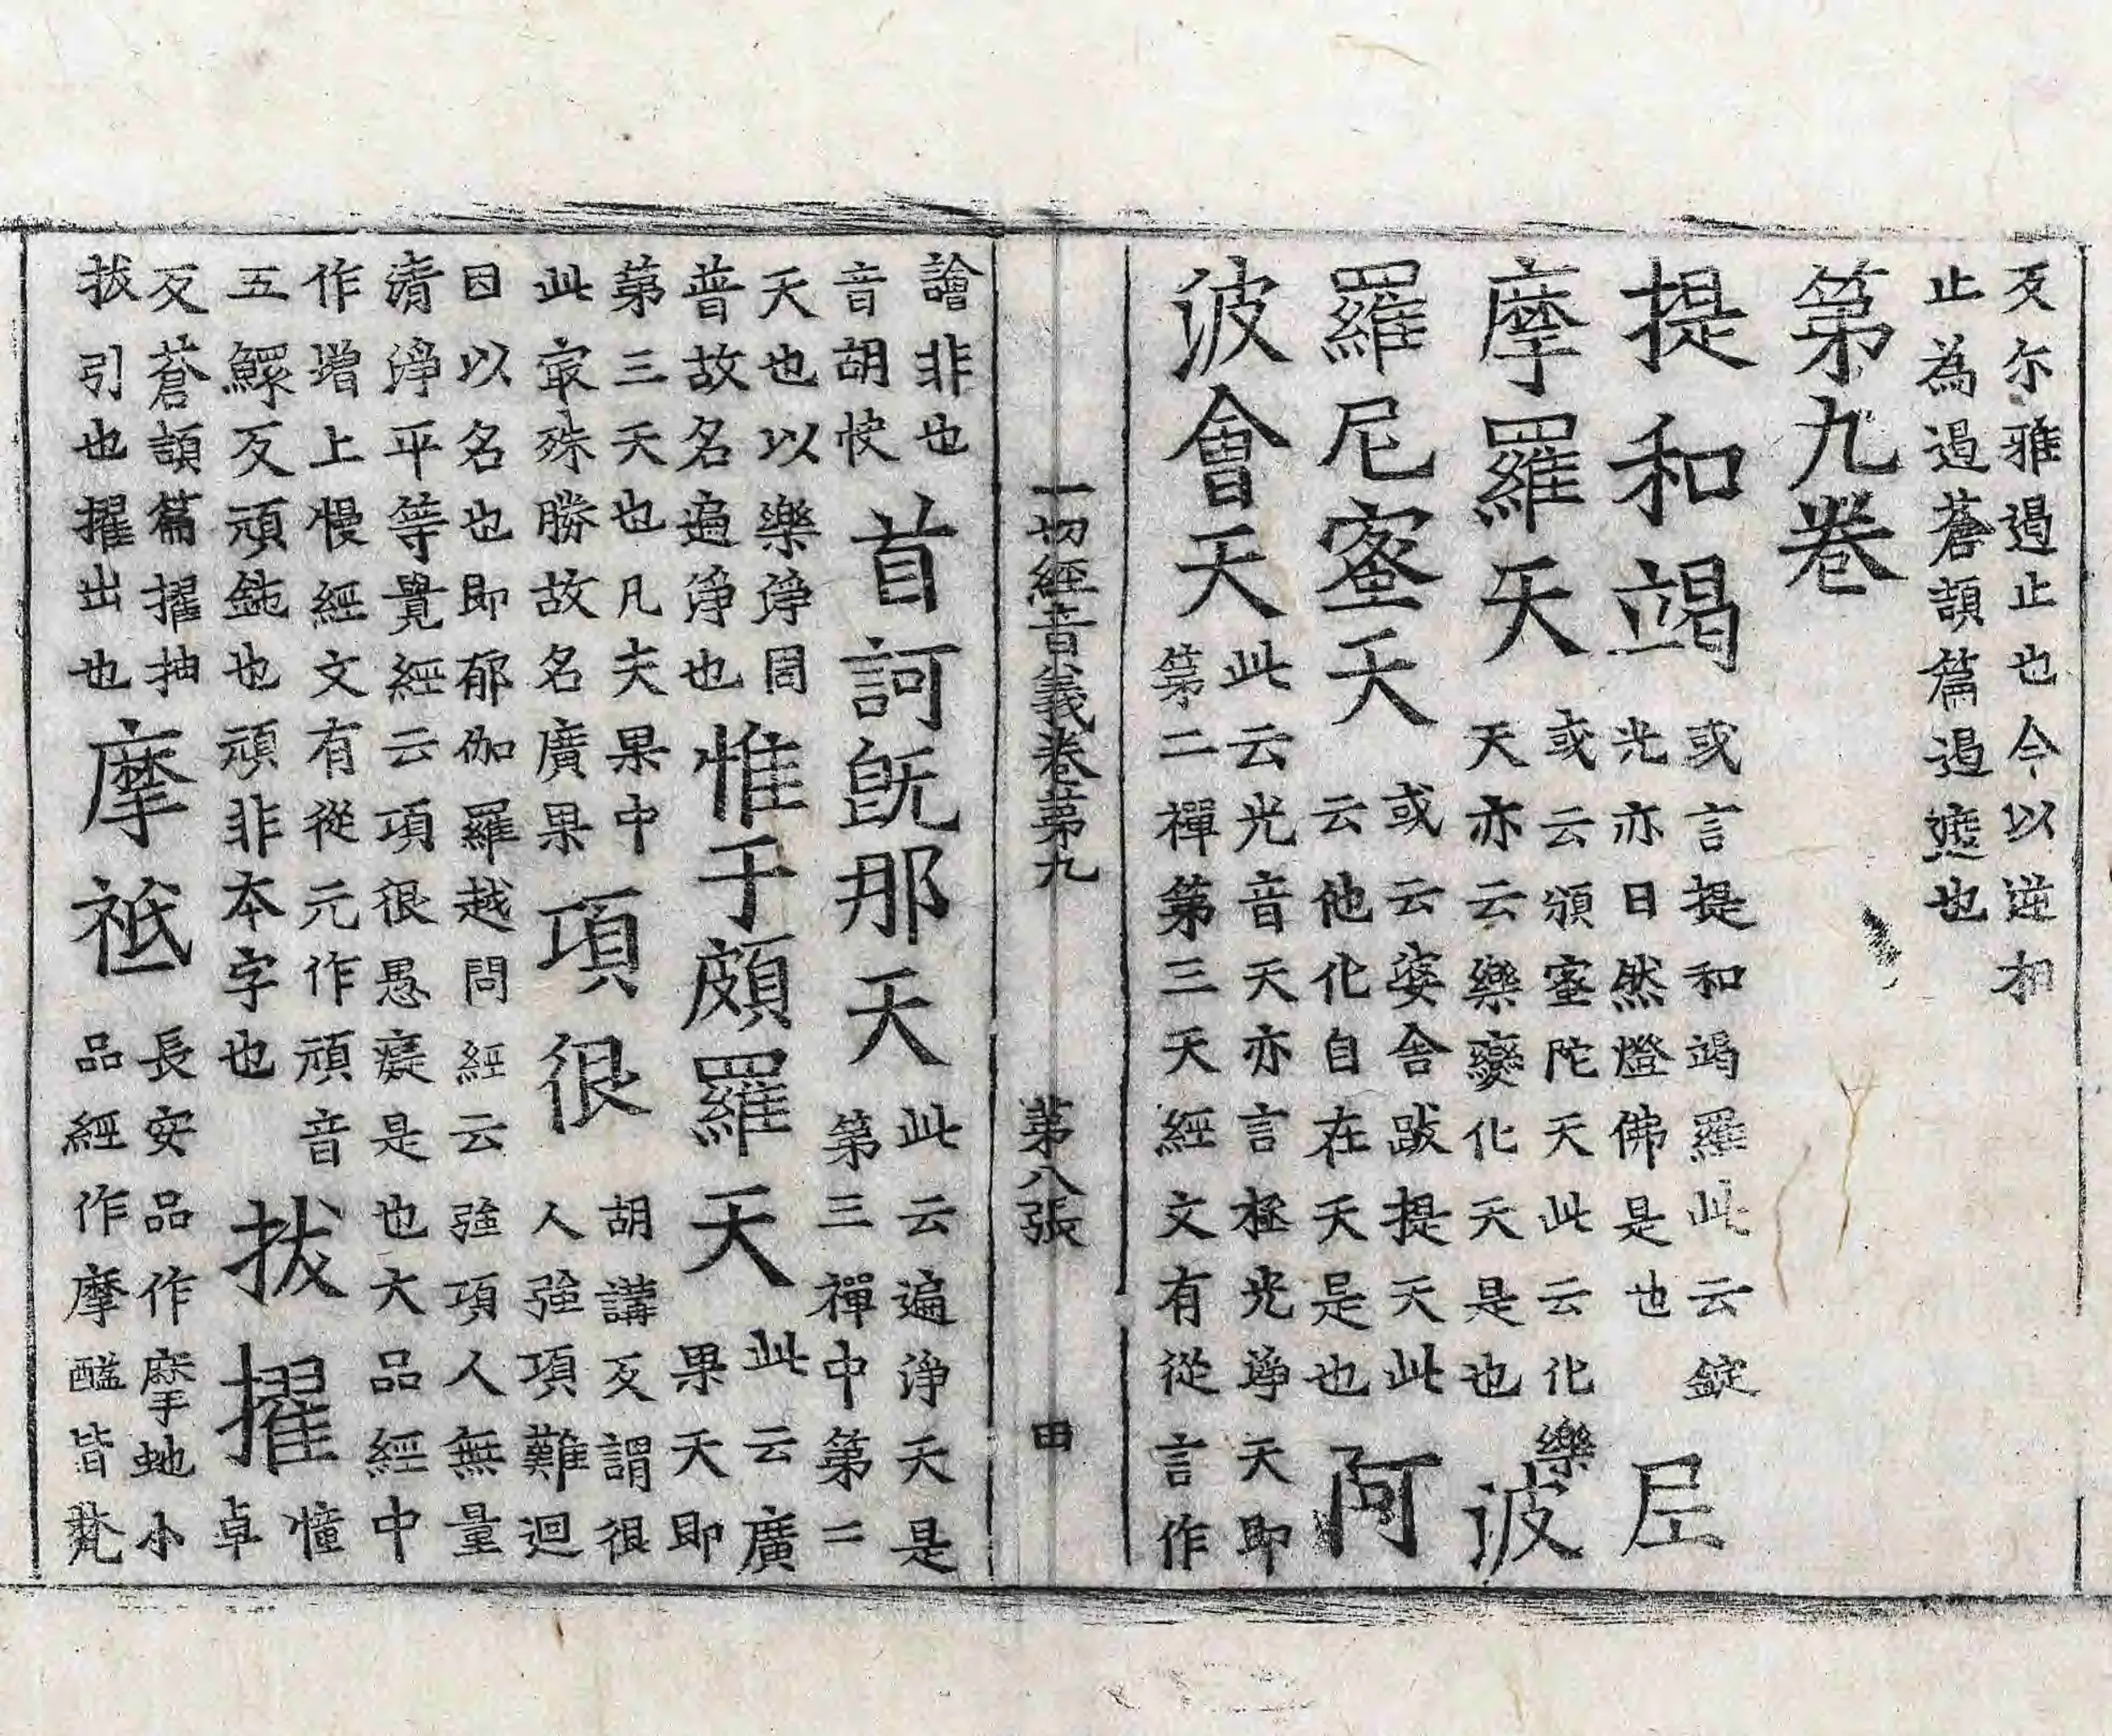 反尓雅遏止也今以逆相
止為遏蒼頡篇遏遮也
第九卷
提和竭
或言提和竭羅此云錠
光亦日然燈佛是也
尼
摩羅天
或云須蜜陀天此云化樂
天亦云樂變化天是也
波
羅尼蜜天
或云婆舍跋提天此
云他化自在天是也
阿
波會天
此云光音天亦言極光淨天即
第二禪第三天經文有從言作
一切經音義卷第九
第八張
田
譮非也
音胡快
首訶旣那天
此云遍淨天是
第三禪中第二
天也以樂淨周
普故名遍淨也
惟于頗羅天
此云廣
果天即
第三天也凡夫果中
此㝡殊勝故名廣果
項很
胡講反謂很
人強項難迴
因以名也即郁伽羅越問經云強項人無量
清淨平等覺經云項很愚癡是也大品經中
作增上慢經文有從元作頑音
五鰥反頑鈍也頑非本字也
拔擢
憧
卓
反蒼頡篇擢抽
拔引也擢出也
摩祇
長安品作摩虵小
品經作摩醯皆梵